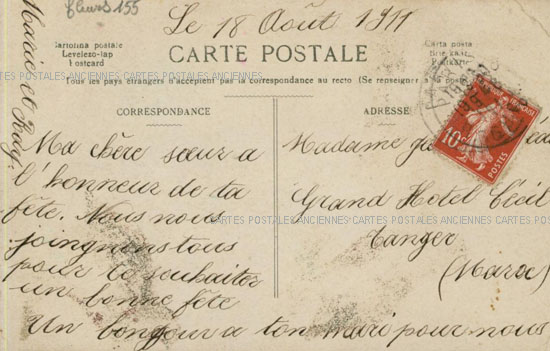 fleurs 155
Le 18 Août 1911
Cartolina postale
Levelezo-lap
Postcard
CARTE POSTALE
Carta posta
Brie kaart
Postkarte
Tous les pays étrangers n'acceptent pas la correspondance au recto (Se renseigner
CARTES POSTALES ANCIENNES CARTES POSTALES ANCIENNES CARTES POSTALES ANCIENNES CARTES POSTALES
CORRESPONDANCE
Ma chère sœur a
l'honneur de ta
fête. Nous nous
joingnons tous
pour te souhaiter
un bonne fête
Un bonjour a ton mari pour nous
Marie et
ADRESSE
Madame
Grand Hotel Cécil
CARTES POSTALES ANCIENNES CARTES POSTALES ANCIENNES CARTES POSTALES
Tanger
(Maroc)
10
POSTES